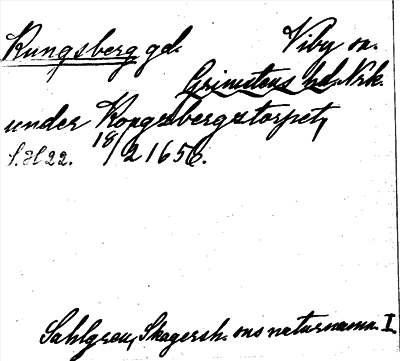 Kungsberg gd. Viby sn.
Grimstens hd. Nrk.
under Kongsbergstorpet,
S.H 22. 18/2 1650.
Sahlgren, Skagersh. ons naturnamn. I